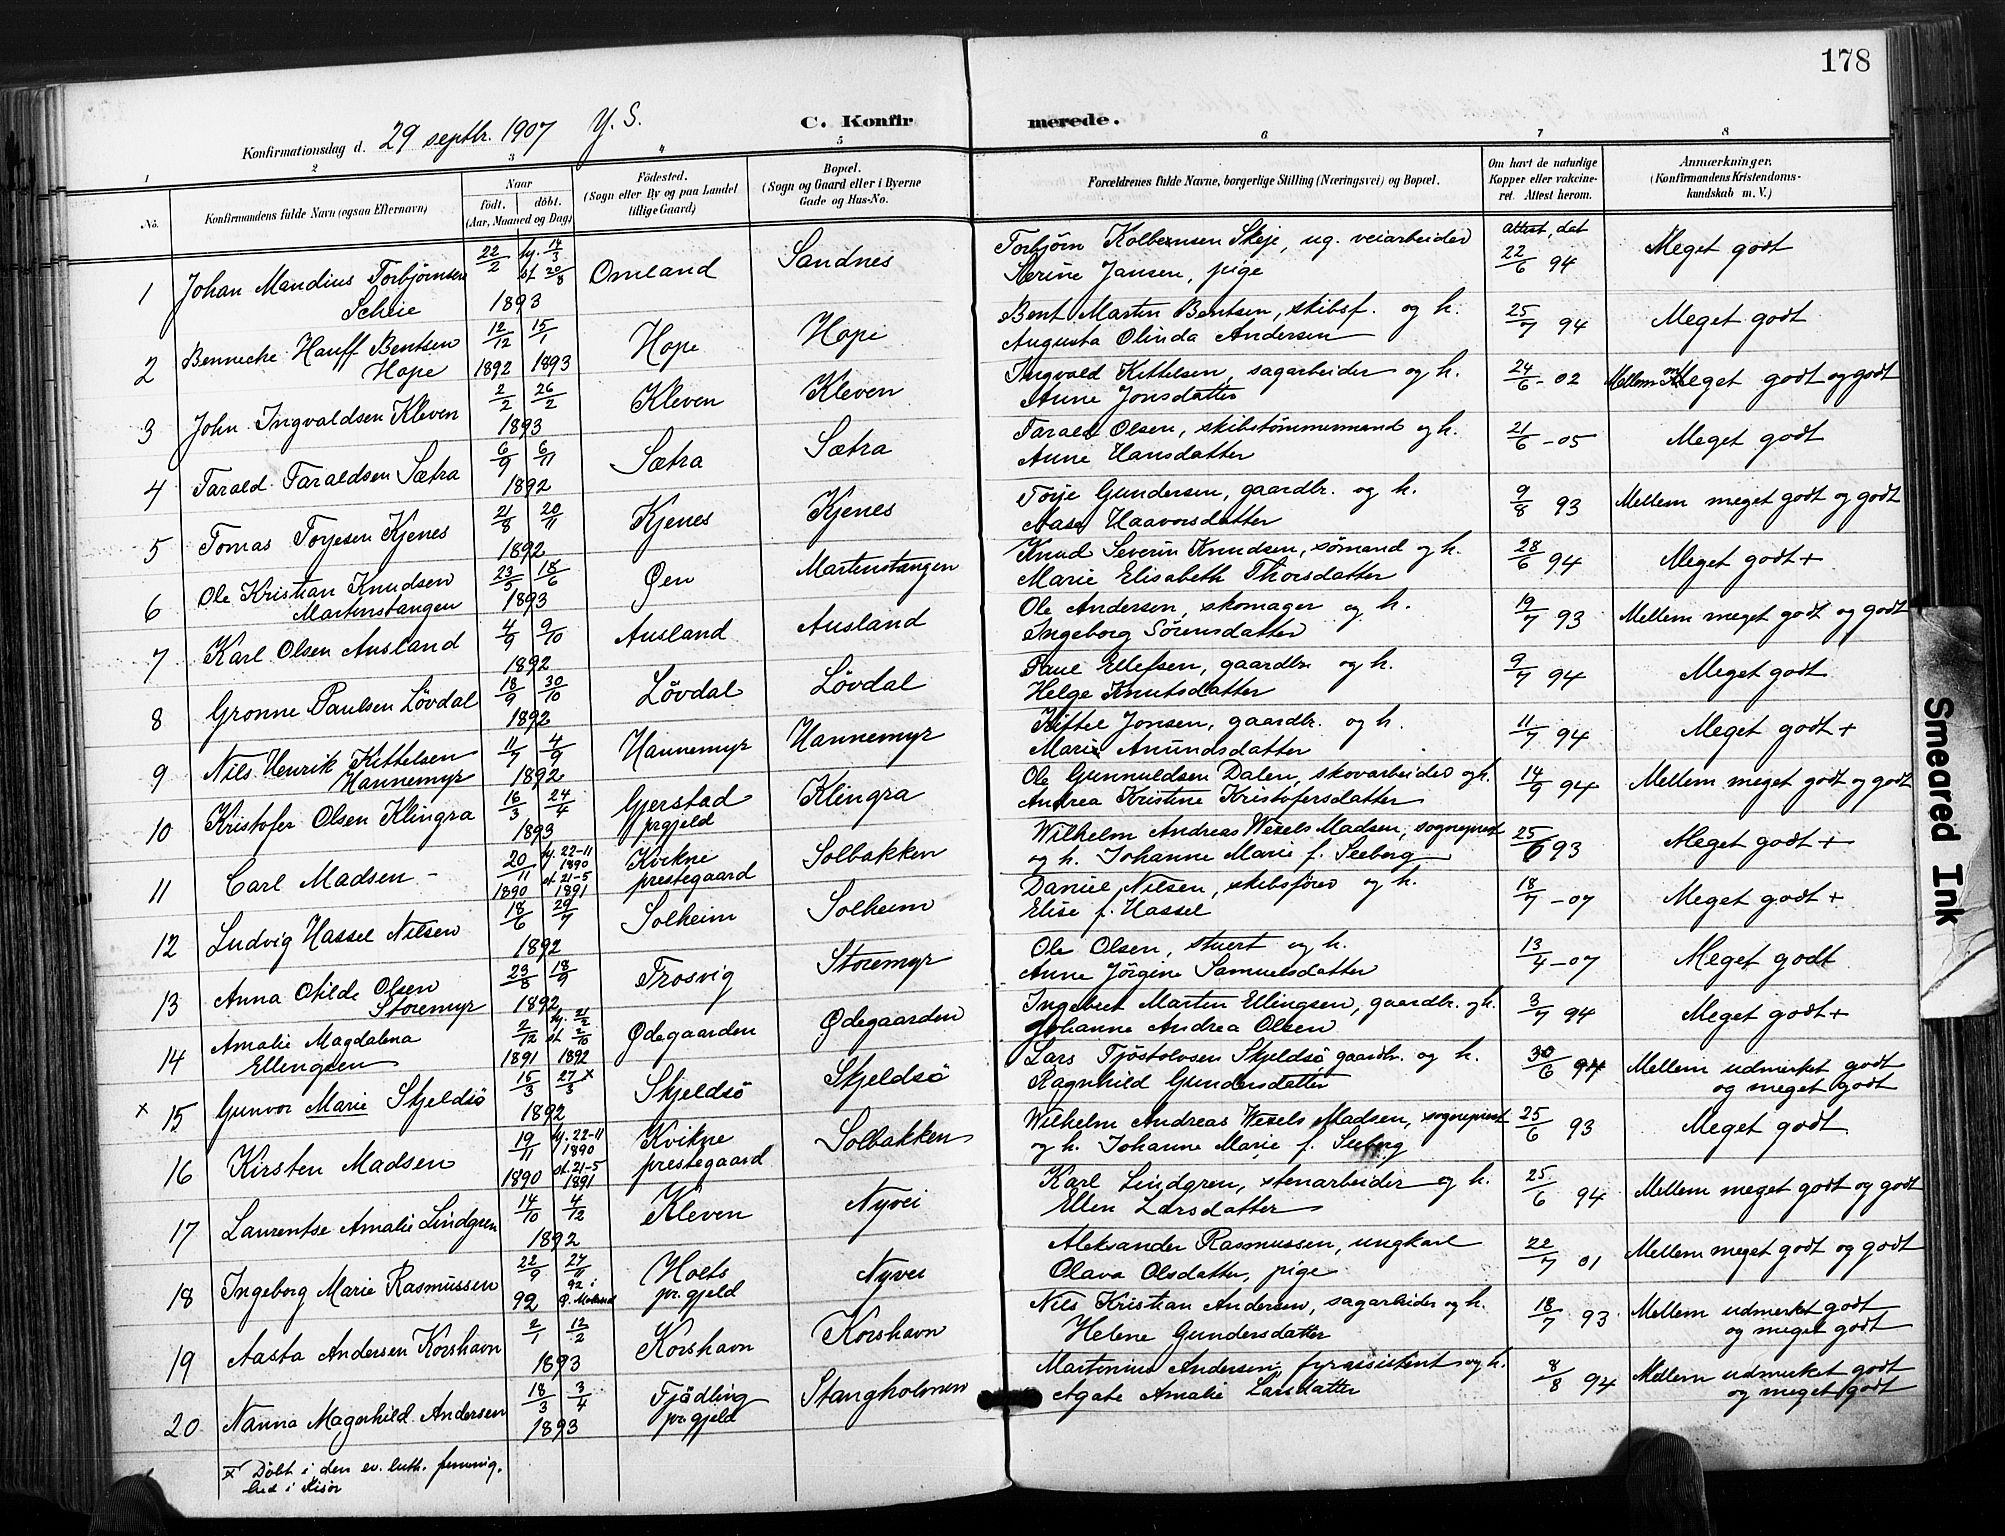 178
Konfirmationsdag d. 29 septbr. 1907 Y. S. C. Konfirmerede.
1 2 3 4 5 6 7 8
No. Konfirmandens fulde Navn (ogsaa Efternavn) Naar født. døbt. (Aar, Maaned og Dag) Fødested. (Sogn eller By og paa Landet tillige Gaard) Bopæl. (Sogn og Gaard eller i Byerne Gade og Hus-No. Forældrenes fulde Navne, borgerlige Stilling (Næringsvei) og Bopæl. Om havt de naturlige Kopper eller vakcineret. Attest herom. Anmærkninger. (Konfirmandens Kristendomskundskab m. V.)
1 Johan Mandius Torbjørnsen Scheie 22/2 hj. 14/3 st 20/8 1893 Omland Sandnes Torbjørn Kolbensen Skeje, ug. veiarbeider Serine Jansen, pige attest, dat 22/6 94 Meget godt
2 Benneche Hauff Bentsen Hope 12/12 1892 15/1 1893 Hope Hope Bent Martin Bentsen, skibsf. og h. Augusta Olinda Andersen 25/7 94 Meget godt
3 John Ingvaldsen Kleven 2/2 26/2 1893 Kleven Kleven Ingvald Kittelsen, sagarbeider og h. Anne Jonsdatter 24/6 - 02 Mellem Meget godt og godt
4 Tarald Taraldsen Sætra 6/9 6/11 1892 Sætra Sætra Tarald Olsen, skibstømmermand og h. Anne Hansdatter 21/6 - 05 Meget godt
5 Tomas Torjesen Kjenes 21/8 20/11 1892 Kjenes Kjenes Torje Gundersen, gaardbr. og h. Aase Haavorsdatter 9/8 93 Mellem meget godt og godt
6 Ole Kristian Knudsen Martinstangen 23/5 18/6 1893 Øen Martinstangen Knud Severin Knudsen, sømand og h. Marie Elisabeth Thorsdatter 28/6 94 Meget godt +
7 Karl Olsen Ausland 4/9 9/10 1892 Ausland Ausland Ole Andersen, skomager og h. Ingeborg Sørensdatter 19/7 93 Mellem meget godt og godt
8 Gronne Paulsen Løvdal 18/9 30/10 1892 Løvdal Løvdal Paul Ellefsen, gaardbr og h. Helge Knutsdatter 9/7 94 Meget godt
9 Nils Henrik Kittelsen Hannemyr 11/7 4/9 1892 Hannemyr Hannemyr Kittel Jonsen, gaardbr. og h. Marie Anundsdatter 11/7 94 Meget godt +
10 Kristofer Olsen Klingra 16/3 24/4 1893 Gjerstad prgjeld Klingra Ole Gunnuldsen Dalen, skovarbeider og h. Andrea Kristine Kristofersdatter 14/9 94 Mellem meget godt og godt
11 Carl Madsen - 20/11 1890 hj. 22-11 1890 st 21-5 1891 Kvikne prestegaard Solbakken Wilhelm Andreas Wexels Madsen, sogneprest og h. Johanne Marie f. Seeberg 25/6 93 Meget godt +
12 Ludvig Hassel Nilsen 18/6 29/7 1892 Solheim Solheim Daniel Nilsen, skibsfører og h. Elise f. Hassel 18/7 - 07 Meget godt +
13 Anna Otilde Olsen Storemyr 23/8 18/9 1892 Trosvig Storemyr Ole Olsen, stuert og h. Anne Jørgine Samuelsdatter 13/4 - 07 Meget godt
14 Amalie Magdalena Ellingsen 2/12 1891 st 2/10 1892 Ødegaarden Ødegaarden Ingebret Martin Ellingsen, gaardbr. og h. Johanne Andrea Olsen 3/7 94 Meget godt +
x 15 Gunvor Marie Skjeldsø 15/3 27/3 x 1892 Skjeldsø Skjeldsø Lars Tjøstolvsen Skjeldsø gaardbr. og h. Ragnhild Gundersdatter 30/6 94 Mellem udmerket godt og meget godt
16 Kirsten Madsen 19/11 1890 hj. 22-11 1890 st. 21-5 1891 Kvikne prestegaard Solbakken Wilhelm Andreas Wexels Madsen, sogneprest og h. Johanne Marie f. Seeberg 25/6 93 Meget godt
17 Laurentse Amalie Lindgren 14/10 4/12 1892 Kleven Nyvei Karl Lindgren, stenarbeider og h. Ellen Larsdatter 25/6 94 Mellem meget godt og godt
18 Ingeborg Marie Rasmussen 22/9 92 27/11 92 i Holts pr.gjeld Nyvei Aleksander Rasmussen, ungkarl Olava Olsdatter, pige 22/7 01 Mellem meget godt og godt
19 Aasta Andersen Korshavn 2/1 12/2 1893 Korshavn Korshavn Nils Kristian Andersen, sagarbeider og h. Helene Gundersdatter 18/7 93. Mellem udmerket godt og meget godt
20 Nanna Magnhild Andersen 18/3 3/4 1893 Fjødling pr.gjeld Stangholmen Martinius Andersen, fyrassistent og h. Agate Amalie Larsdatter 8/8 94 Mellem udmerket godt og meget godt
x Døbt i den ev. luth. frimenig.
hed i Risør
Smeared Ink